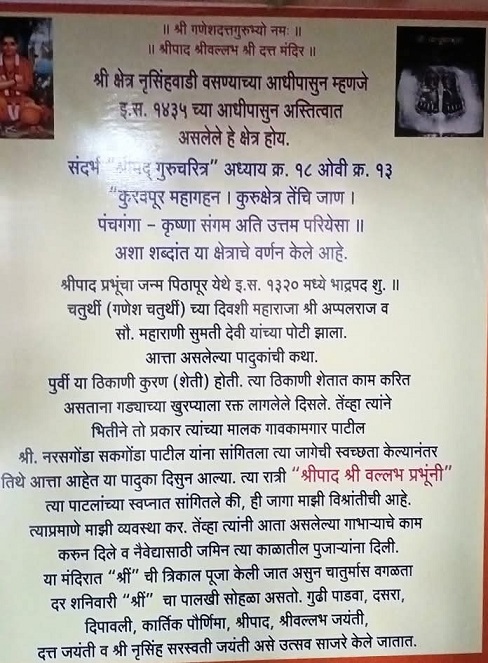 ॥ श्री गणेशदत्तगुरुभ्यो नमः ॥
॥ श्रीपाद श्रीवल्लभ श्री दत्त मंदिर ॥
श्री क्षेत्र नृसिंहवाडी वसण्याच्या आधीपासुन म्हणजे
इ.स. १४३५ च्या आधीपासुन अस्तित्वात
असलेले हे क्षेत्र होय.
संदर्भ "श्रीमद् गुरुचरित्र" अध्याय क्र. १८ ओवी क्र. १३
"कुरवपूर महागहन । कुरुक्षेत्र तेंचि जाण ।
पंचगंगा - कृष्णा संगम अति उत्तम परियेसा ॥
अशा शब्दांत या क्षेत्राचे वर्णन केले आहे.
श्रीपाद प्रभूंचा जन्म पिठापूर येथे इ.स. १३२० मध्ये भाद्रपद शु. ॥
चतुर्थी (गणेश चतुर्थी) च्या दिवशी महाराजा श्री अप्पलराज व
सौ. महाराणी सुमती देवी यांच्या पोटी झाला.
आत्ता असलेल्या पादुकांची कथा.
पुर्वी या ठिकाणी कुरण (शेती) होती. त्या ठिकाणी शेतात काम करित
असताना गड्याच्या खुरप्याला रक्त लागलेले दिसले. तेंव्हा त्यांने
भितीने तो प्रकार त्यांच्या मालक गावकामगार पाटील
श्री. नरसगोंडा सकगोंडा पाटील यांना सांगितला त्या जागेची स्वच्छता केल्यानंतर
तिथे आत्ता आहेत या पादुका दिसुन आल्या. त्या रात्री "श्रीपाद श्री वल्लभ प्रभूंनी"
त्या पाटलांच्या स्वप्नात सांगितले की, ही जागा माझी विश्रांतीची आहे.
त्याप्रमाणे माझी व्यवस्था कर. तेंव्हा त्यांनी आता असलेल्या गाभाऱ्याचे काम
करुन दिले व नैवेद्यासाठी जमिन त्या काळातील पुजाऱ्यांना दिली.
या मंदिरात "श्रीं" ची त्रिकाल पूजा केली जात असुन चातुर्मास वगळता
दर शनिवारी "श्रीं" चा पालखी सोहळा असतो. गुढी पाडवा, दसरा,
दिपावली, कार्तिक पौर्णिमा, श्रीपाद, श्रीवल्लभ जयंती,
दत्त जयंती व श्री नृसिंह सरस्वती जयंती असे उत्सव साजरे केले जातात.